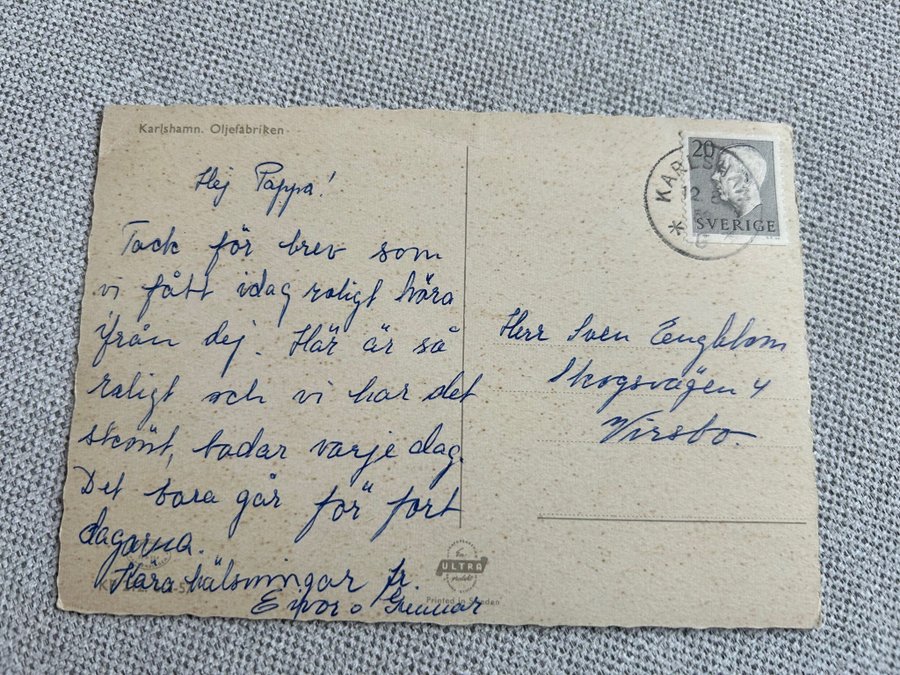 Karlshamn. Oljefabriken
Hej Pappa!
Tack för brev som
vi fått idag roligt höra
ifrån dej. Här är så
roligt och vi har det
skönt, badar varje dag.
Det bara går för fort
dagarna.
Kära hälsningar fr.
o Gunnar
20
SVERIGE
KARLSHAMN
12
Herr Sven Engblom
Skogsvägen 4
Virsbo
En
ULTRA
produkt
Printed in Sweden